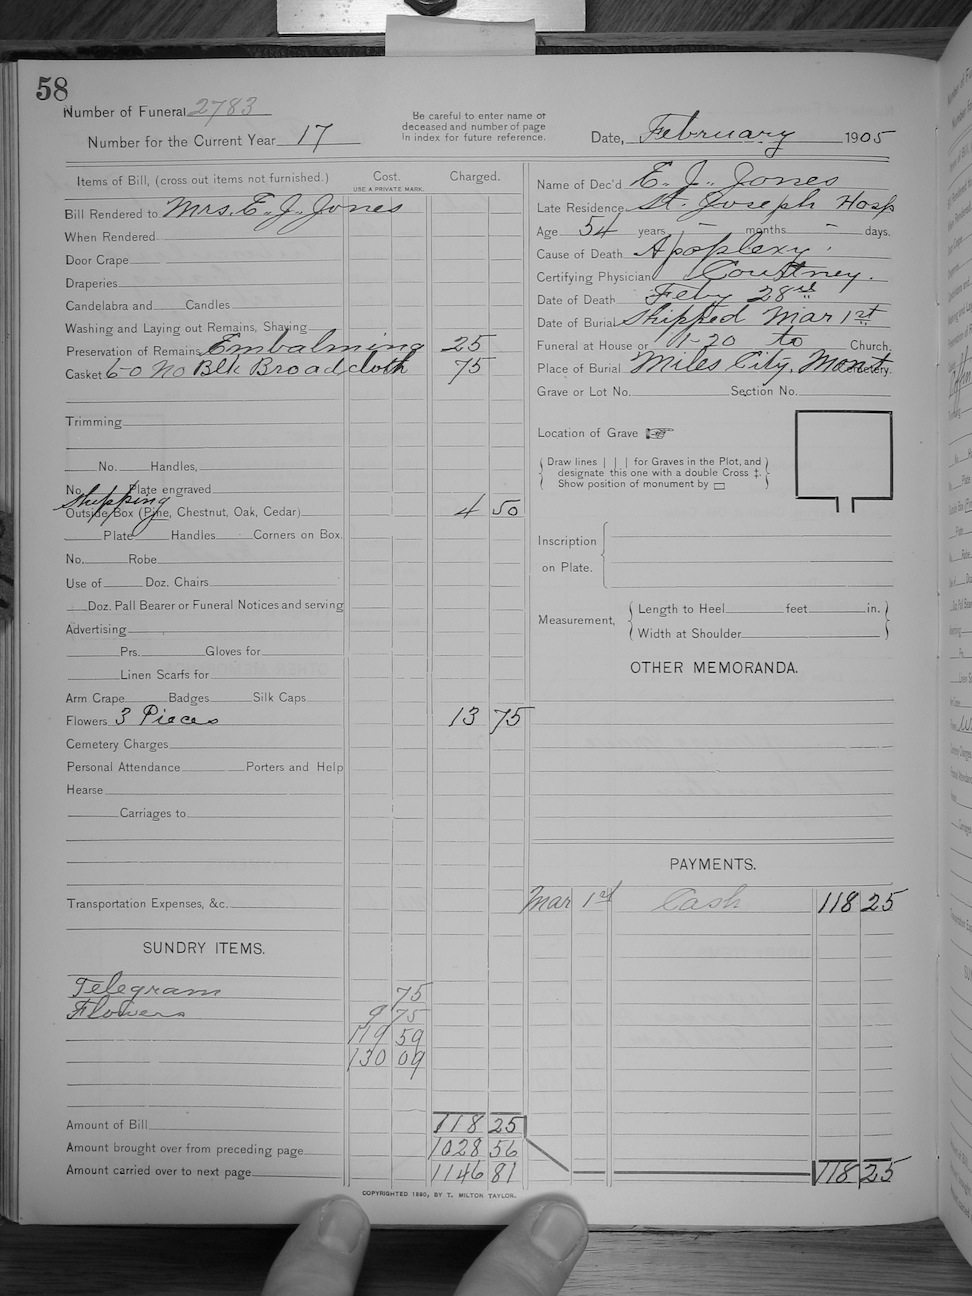 58
Number of Funeral 2783
Number for the Current Year 17
Be careful to enter name of
deceased and number of page
in index for future reference.
Date, February 1905
Items of Bill, (cross out items not furnished.) Cost. Charged.
USE A PRIVATE MARK.
Bill Rendered to Mrs. E. J. Jones
When Rendered
Door Crape
Draperies
Candelabra and Candles
Washing and Laying out Remains, Shaving
Preservation of Remains Embalming 25
Casket 6-0 No Blk Broadcloth 75
Trimming
No. Handles,
No. Plate engraved
Shipping
Outside Box (Pine, Chestnut, Oak, Cedar) 4 50
Plate Handles Corners on Box.
No. Robe
Use of Doz. Chairs
Doz. Pall Bearer or Funeral Notices and serving
Advertising
Prs. Gloves for
Linen Scarfs for
Arm Crape Badges Silk Caps
Flowers 3 Pieces 13 75
Cemetery Charges
Personal Attendance Porters and Help
Hearse
Carriages to
Transportation Expenses, &c.
SUNDRY ITEMS.
Telegram 75
Flowers 9 75
119 59
130 09
Amount of Bill 118 25
Amount brought over from preceding page 1028 56
Amount carried over to next page 1146 81
COPYRIGHTED 1880, BY T. MILTON TAYLOR.
Name of Dec'd E. J. Jones
Late Residence St. Joseph Hosp
Age 54 years, – months – days.
Cause of Death Apoplexy.
Certifying Physician Courtney.
Date of Death Feby 28
Date of Burial Shipped Mar 1st
Funeral at House or 11-20 to Church.
Place of Burial Miles City, Mont Cemetery.
Grave or Lot No. Section No.
Location of Grave
Draw lines | | | for Graves in the Plot, and
designate this one with a double Cross ‡.
Show position of monument by
Inscription
on Plate.
Measurement,
Length to Heel feet in.
Width at Shoulder
OTHER MEMORANDA.
PAYMENTS.
Mar 1st Cash 118 25
118 25